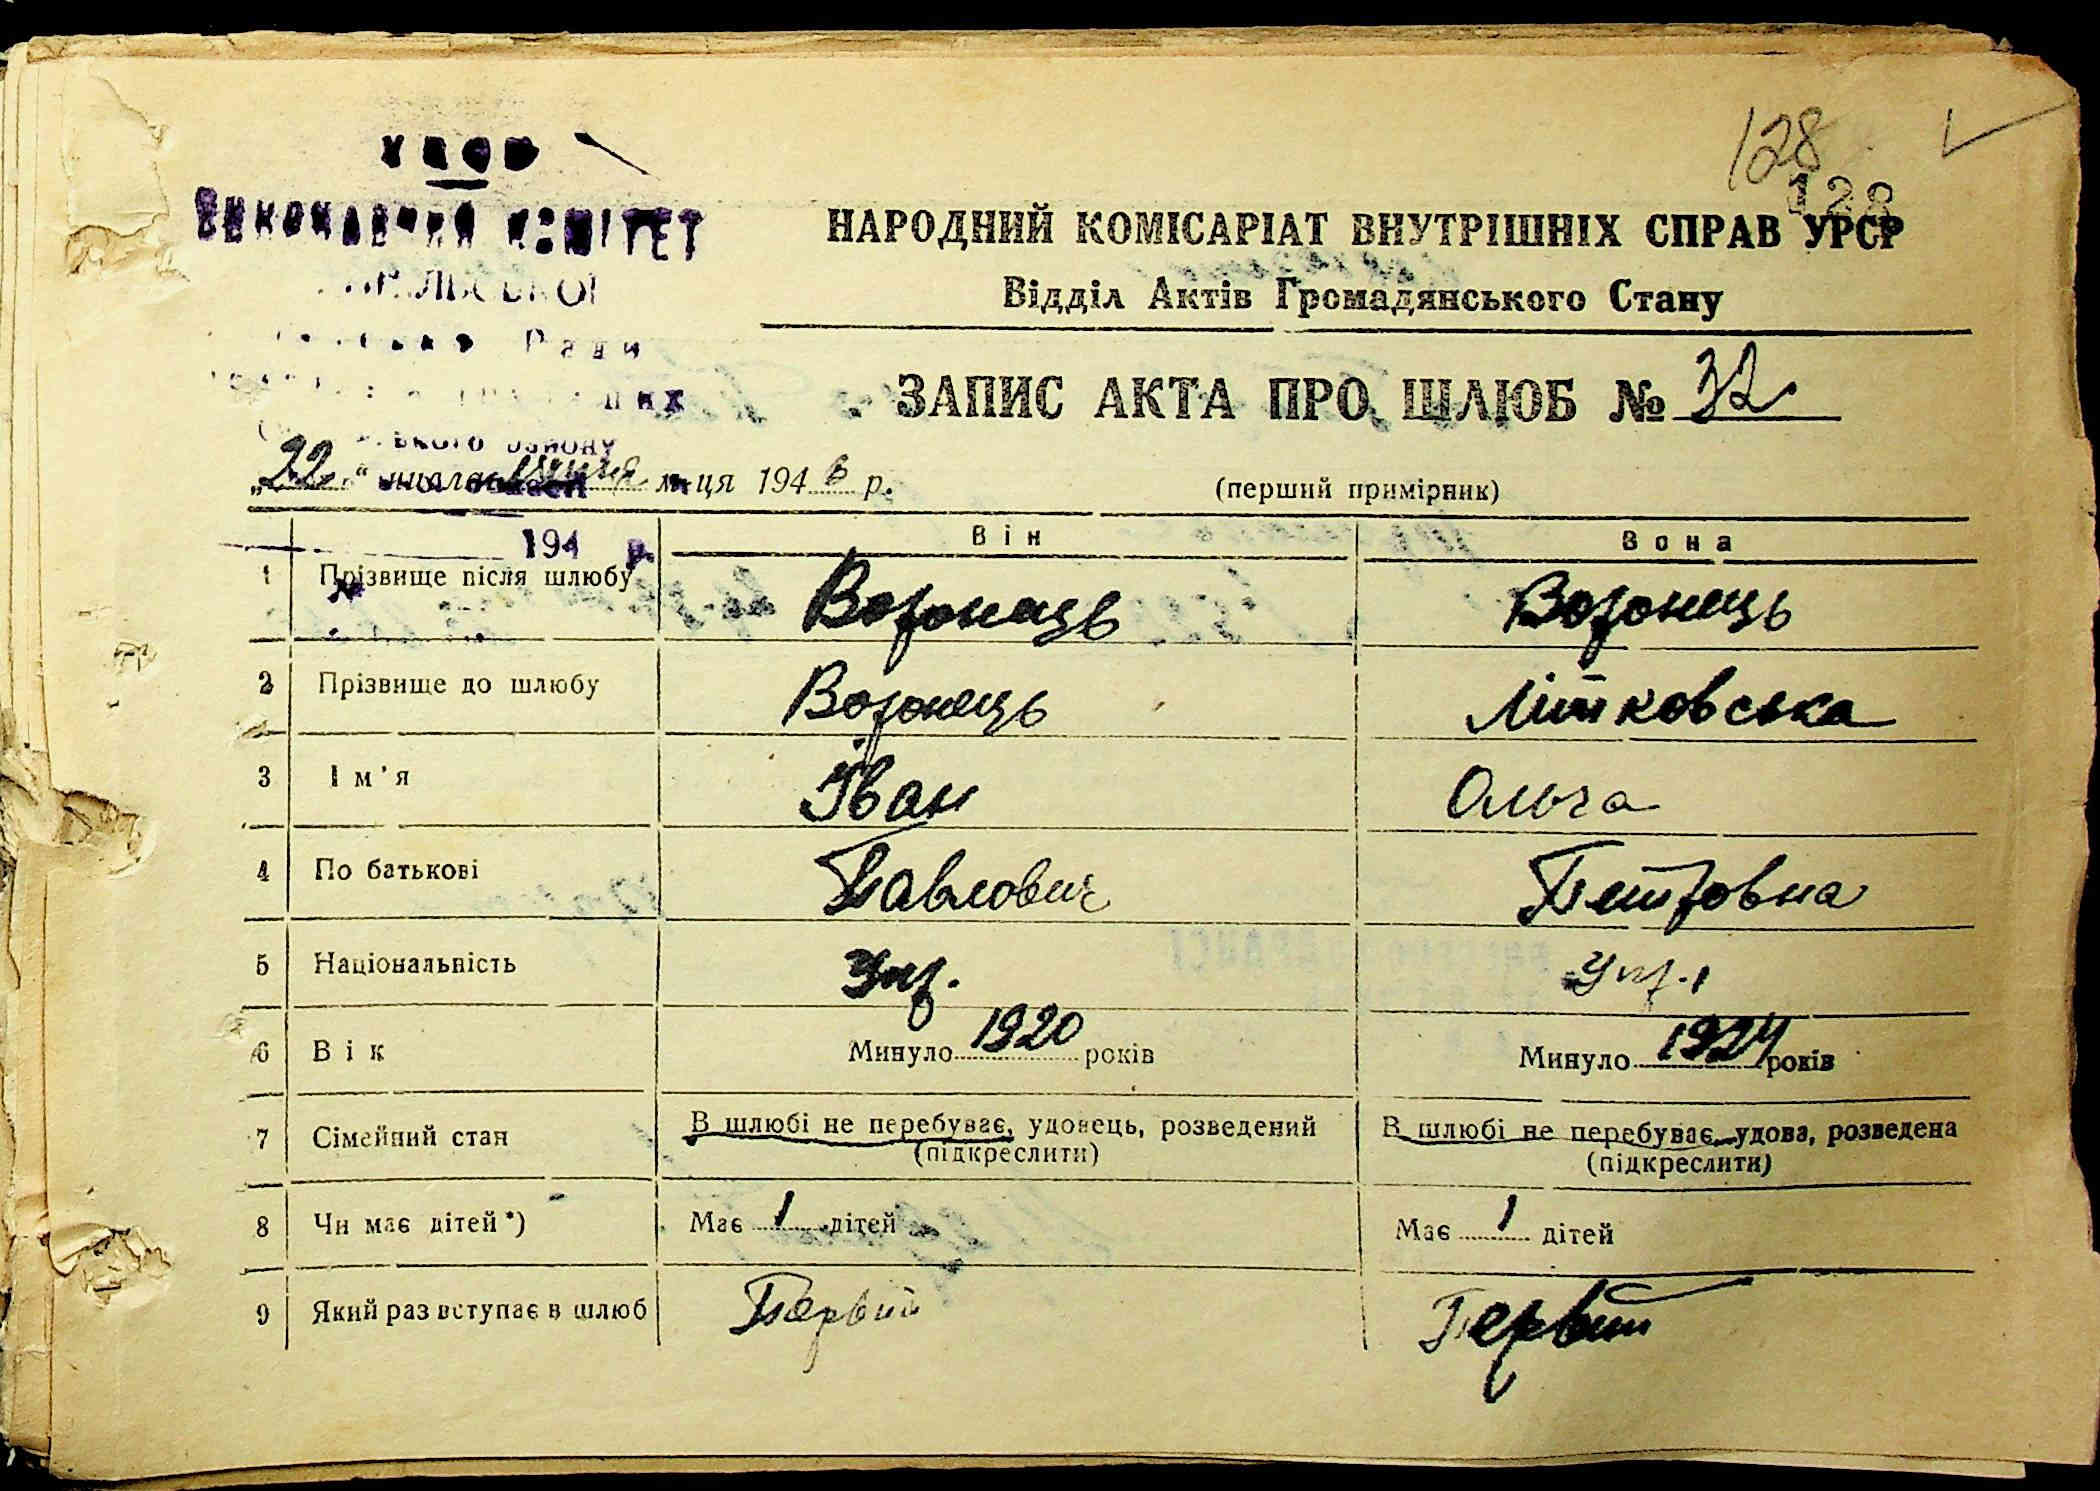 128
128
УРСР
ВИКОНАВЧИЙ КОМІТЕТ
Ради
району
НАРОДНИЙ КОМІСАРІАТ ВНУТРІШНІХ СПРАВ УРСР
Відділ Актів Громадянського Стану
ЗАПИС АКТА ПРО ШЛЮБ № 32
„22“ м-ця 1946 р.
(перший примірник)
194 р.
№
Він Вона
1 Прізвище після шлюбу Воронець Воронець
2 Прізвище до шлюбу Воронець Літковська
3 Ім'я Іван Ольга
4 По батькові Павлович Петровна
5 Національність Укр. Укр.
6 Вік Минуло 1920 років Минуло 1924 років
7 Сімейний стан В шлюбі не перебуває, удовець, розведений В шлюбі не перебуває, удова, розведена
(підкреслити) (підкреслити)
8 Чи має дітей*) Має 1 дітей Має 1 дітей
9 Який раз вступає в шлюб Первий Первий